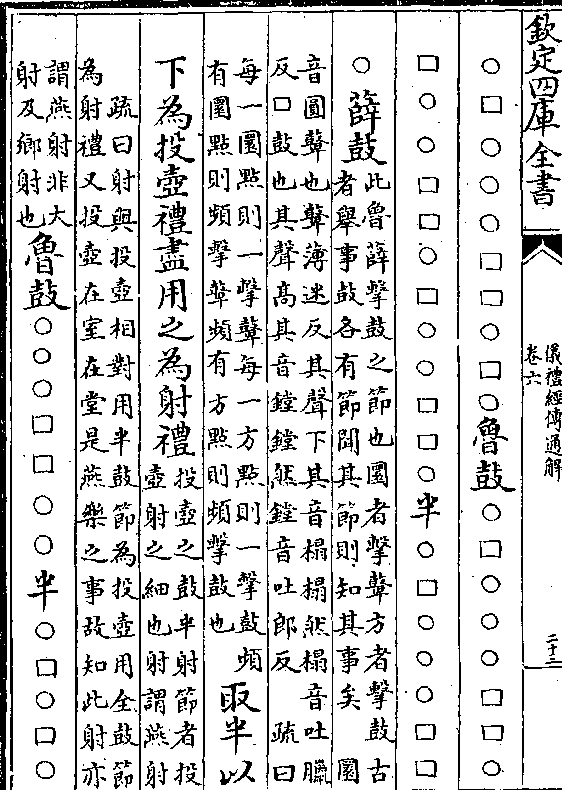 欽定四庫全書
儀禮經傳通解
卷六
二十三
○□○○○□□○□○魯鼓○□○○○□□○
□○○□□○□○○□□○半○□○○○□□
○薛鼓
此魯薛擊鼓之節也圜者擊鼙方者擊鼓古
者舉事鼓各有節聞其節則知其事矣 圜
音圓鼙也鼙薄迷反其聲下其音榻榻然榻音吐臘
反□鼓也其聲高其音鏜鏜然鏜音吐郎反 疏曰
每一圜點則一擊鼙每一方點則一擊鼓頻
有圜點則頻擊鼙頻有方點則頻擊鼓也
取半以
下為投壺禮盡用之為射禮
投壺之鼓半射節者投
壺射之細也射謂燕射
疏曰射與投壺相對用半鼓節為投壺用全鼓節
為射禮又投壺在室在堂是燕樂之事故知此射亦
謂燕射非大
射及鄉射也
魯鼓○○○□□○○半○□○□○